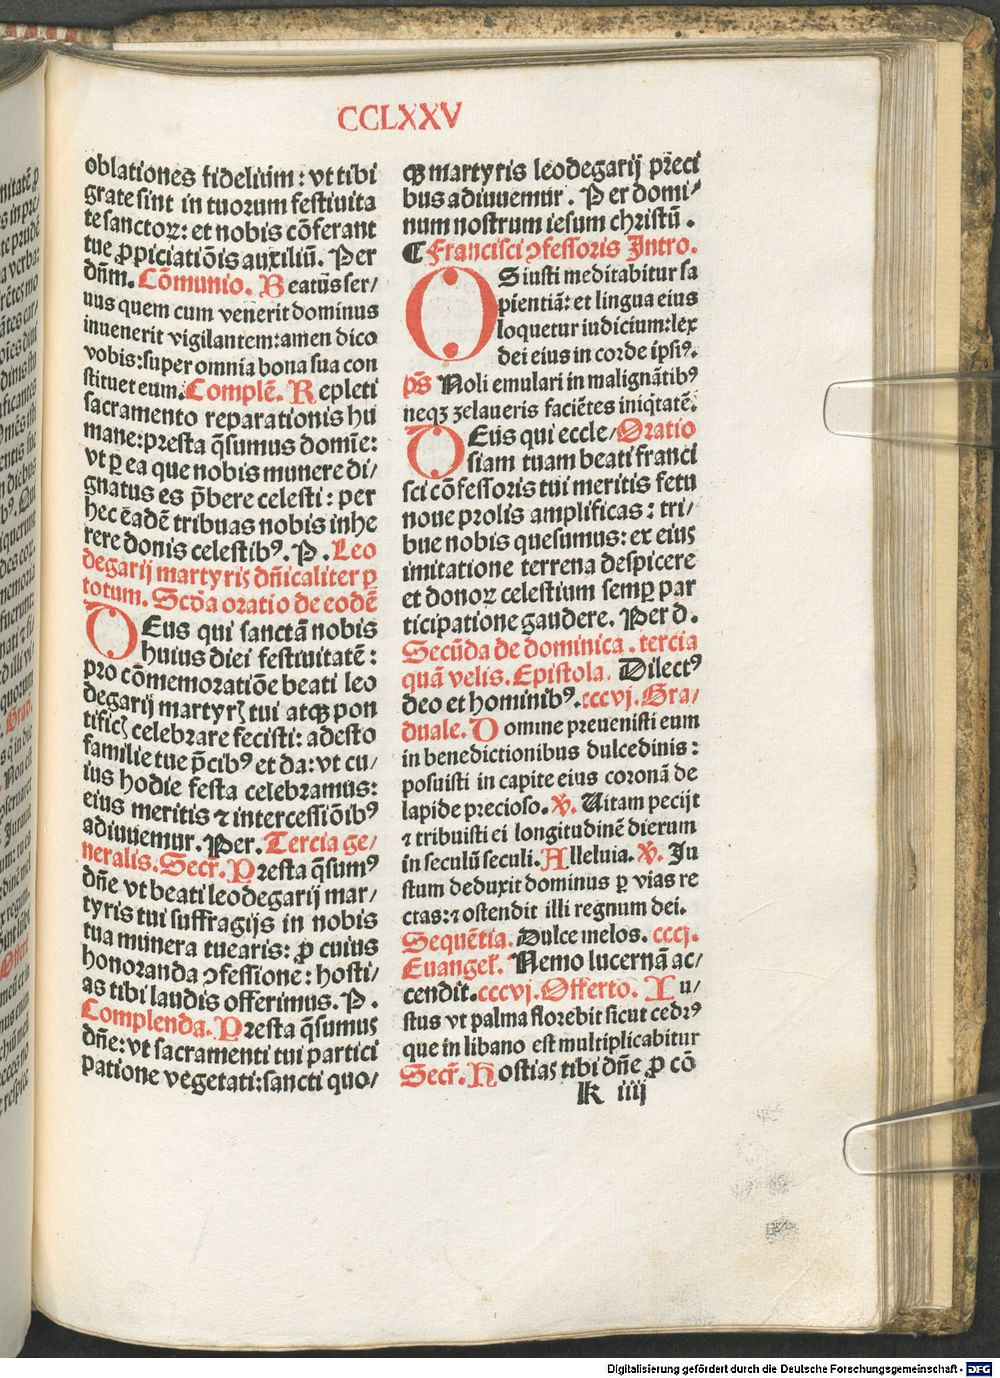 CCLXXV
oblationes fidelium: vt tibi
grate sint in tuorum festiuita
te sanctoꝝ: et nobis cōferant
tue ꝓpiciatiōis auxiliū. Per
dn̄m. Cōmunio. Beatus ser/
uus quem cum venerit dominus
inuenerit vigilantem: amen dico
vobis: super omnia bona sua con
stituet eum. Complē. Repleti
sacramento reparationis hu
mane: presta q̄sumus domīe:
vt ꝑ ea que nobis munere di/
gnatus es p̄bere celesti: per
hec ēadē tribuas nobis inhe
rere donis celestibꝰ. P. Leo
degarij martyris dn̄icaliter ꝑ
totum. Scd̄a oratio de eodē
DEus qui sanctā nobis
huius diei festiuitatē:
pro cōmemoratiōe beati leo
degarij martyrꝭ tui atqꝫ pon
tificꝭ celebrare fecisti: adesto
familie tue p̄cibꝰ et da: vt cu/
ius hodie festa celebramus:
eius meritis ⁊ intercessiōibꝰ
adiuuemur. Per. Tercia ge/
neralis. Secr̄. Presta q̄sumꝰ
dn̄e vt beati leodegarij mar/
tyris tui suffragijs in nobis
tua munera tuearis: ꝓ cuius
honoranda ꝯfessione: hosti/
as tibi laudis offerimus. P.
Complenda. Presta q̄sumus
dn̄e: vt sacramenti tui partici
patione vegetati: sancti quo/
qꝫ martyris leodegarij p̄reci
bus adiuuemur. Per domi/
num nostrum iesum christū.
¶ Francisci ꝯfessoris Intro.
OS iusti meditabitur sa
pientiā: et lingua eius
loquetur iudicium: lex
dei eius in corde ipsiꝰ.
ps̄ Noli emulari in malignātibꝰ
neqꝫ zelaueris faciētes iniq̄tatē.
DEus qui eccle/ Oratio
siam tuam beati franci
sci cōfessoris tui meritis fetu
noue prolis amplificas: tri/
bue nobis quesumus: ex eius
imitatione terrena despicere
et donoꝝ celestium semꝑ par
ticipatione gaudere. Per d.
Secūda de dominica. tercia
quā velis. Epistola. Dilectꝰ
deo et hominibꝰ. cccvj. Gra/
duale. Domine preuenisti eum
in benedictionibus dulcedinis:
posuisti in capite eius coronā de
lapide precioso. ℣. Uitam pecijt
⁊ tribuisti ei longitudinē dierum
in seculū seculi. Alleluia. ℣. Iu
stum deduxit dominus ꝑ vias re
ctas: ⁊ ostendit illi regnum dei.
Sequētia. Dulce melos. cccj.
Euangel̄. Nemo lucernā ac/
cendit. cccvj. Offerto. Iu/
stus vt palma florebit sicut cedrꝰ
que in libano est multiplicabitur
Secr̄. Hostias tibi dn̄e ꝓ cō
k iiij
Digitalisierung gefördert durch die Deutsche Forschungsgemeinschaft - DFG